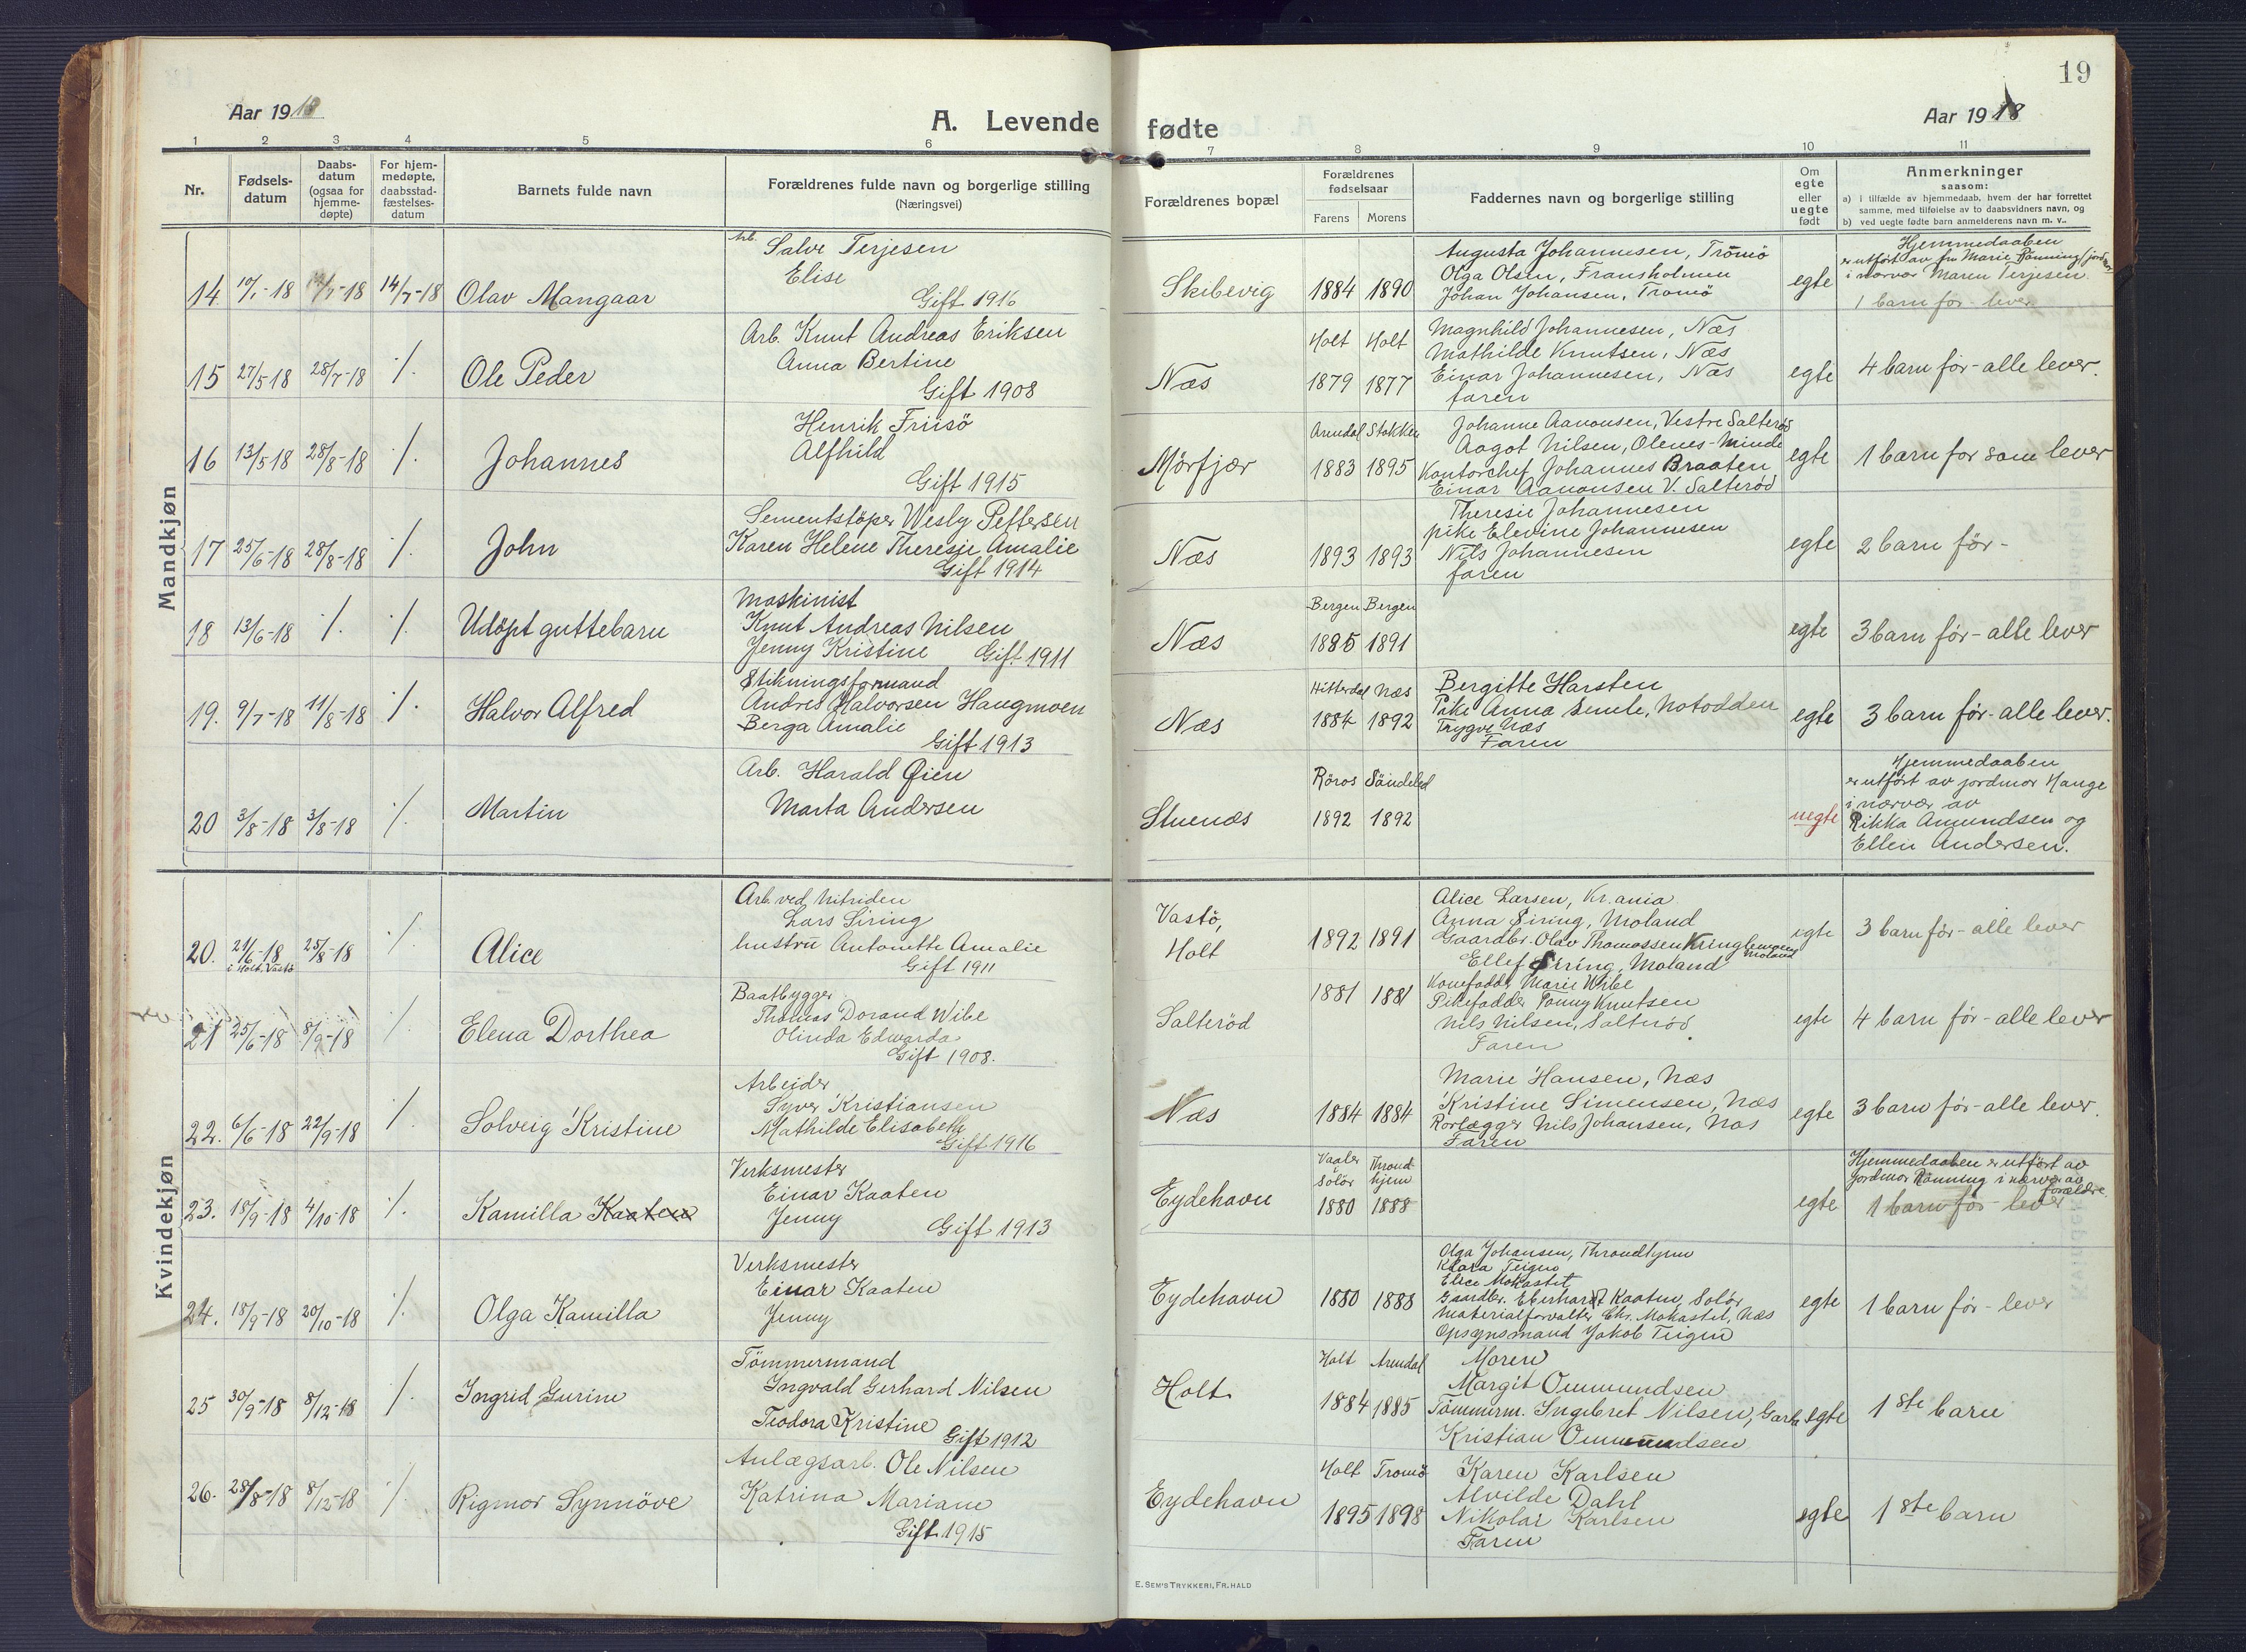 19
Aar 1918
A. Levende fødte
Aar 1918
1 2 3 4 5 6 7 8 9 10 11
Nr.
Fødsels-
datum
Daabs-
datum
(ogsaa for
hjemme-
døpte)
For hjem-
medøpte,
daabsstad-
fæstelses-
datum
Barnets fulde navn
Forældrenes fulde navn og borgerlige stilling
(Næringsvei)
Forældrenes bopæl
Forældrenes
fødselsaar
Farens Morens
Faddernes navn og borgerlige stilling
Om
egte
eller
uegte
født
Anmerkninger
saasom:
a) i tilfælde av hjemmedaab, hvem der har forrettet
samme, med tilføielse av to daabsvidners navn, og
b) ved uegte fødte barn anmelderens navn m. v..
Mandkjøn
14 10/1-18 14/7-18 Olav Mangaar
Arb. Salve Terjesen
Elise
Gift 1916
Skibevig
1884 1890
Augusta Johannesen, Tromö
Olga Olsen, Fransholmen
Johan Johansen, Tromö
egte
Hjemmedaaben
er utført av fru Marie Rønning (jordmor)
i nærvær Maren Terjesen
1 barn før - lever
15 27/5 18 28/7-18 ./. Ole Peder
Arb. Knut Andreas Eriksen
Anna Bertine
Gift 1908
Næs
Holt Holt
1879 1877
Magnhild Johannesen, Næs
Mathilde Knutsen, Næs
Einar Johannesen, Næs
faren
egte
4 barn før - alle lever.
16 13/5 18 28/8-18 ./. Johannes
Henrik Friisö
Alfhild
Gift 1915
Mørfjær
Arendal Stokken
1883 1895
Johanne Aanonsen, Vestre Salterød
Aagot Nilsen, Olenes-Minde
Kontorchef Johannes Braaten
Einar Aanonsen V. Salterød
egte
1 barn før som lever
17 25/6-18 28/8-18 ./. John
Sementstöper Wesly Pettersen
Karen Helene Theresie Amalie
Gift 1914
Næs
1893 1893
Theresie Johannesen
pike Elevine Johannesen
Nils Johannesen
faren
egte
2 barn før -
18 13/6-18 ./. ./. Udöpt guttebarn
Maskinist
Knut Andreas Nilsen
Jenny Kristine Gift 1911
Næs
Bergen Bergen
1885 1891
egte
3 barn før - alle lever
19. 9/7-18 11/8-18 ./. Halvor Alfred
Stikningsformand
Andres Halvorsen Haugmoen
Berga Amalie
Gift 1913
Næs
Hitterdal Næs
1884 1892
Bergitte Harsten
Pike Anna Semle, Notodden
Trygve Næs
Faren
egte
3 barn før - alle lever.
20 3/8-18 3/8-18 ./. Martin
Arb. Harald Øien
Marta Andersen
Stuenæs
Röros Söndeled
1892 1892
uegte
Hjemmedaaben
er utført av jordmor Hauge
i nærvær av
Rikka Amundsen og
Ellen Andersen.
Kvindekjøn
20. 21/6-18 25/8-18 ./. Alice
i Holt, Vastö
Arb. ved Nitriden
Lars Siring
hustru Antonette Amalie
Gift 1911
Vastö,
Holt
1892 1891
Alice Larsen, Kr.ania
Anna Siring, Moland
Gaardbr. Olav Thomassen Kringlemoen
Moland
Ellef Siring, Moland
egte
3 barn før - alle lever
21 25/6-18 8/9-18 ./. Elena Dorthea
Baatbygger
Thomas Dorand Wibe
Olinda Edwarda
Gift 1908.
Salteröd
1881 1881
Konefadder Marie Wibe
Pikefadder Tonny Knutsen
Nils Nilsen, Salteröd
Faren
egte
4 barn før - alle lever
22. 6/6-18 22/9-18 ./. Solveig Kristine
Arbeider
Syver Kristiansen
Mathilde Elisabeth
Gift 1916
Næs
1884 1884
Marie Hansen, Næs
Kristine Simensen, Næs
Rorlægger Nils Johansen, Næs
Faren
egte
3 barn før - alle lever.
23. 18/9-18 4/10-18 ./. Kamilla Kaaten
Verksmester
Einar Kaaten
Jenny
Gift 1913
Eydehavn
Vaaler Thrond-
Solör hjem
1880 1888
egte
Hjemmedaaben er utført av
jordmor Rønning i nærvær av
forældre
1 barn før - lever
24. 18/9-18 20/10-18 ./. Olga Kamilla
Verksmester
Einar Kaaten
Jenny
Eydehavn
1880 1888
Olga Johansen, Throndhjem
Klara Teigen
Elise Mokastet
Gaardbr. Eberhardt Kaaten, Solör
Materialforvalter Chr. Mokastet, Næs
Opsynsmand Jakob Teigen
egte
1 barn før - lever
25 30/9-18 8/12-18 ./. Ingrid Gurine
Tömmermand
Ingvald Gerhard Nilsen
Teodora Kristine Gift 1912
Holt
Holt Arendal
1884 1885
Moren
Margit Ommundsen
Tömmerm. Ingebret Nilsen, Garta
Kristian Ommundsen
egte
1ste barn
26. 28/8-18 8/12-18 ./. Rigmor Synnöve
Anlægsarb. Ole Nilsen
Katrina Mariane
Gift 1915
Eydehavn
Holt Tromö
1895 1898
Karen Karlsen
Alvilde Dahl
Nikolai Karlsen
Faren
egte
1ste barn
E. SEM'S TRYKKERI, FR.HALD